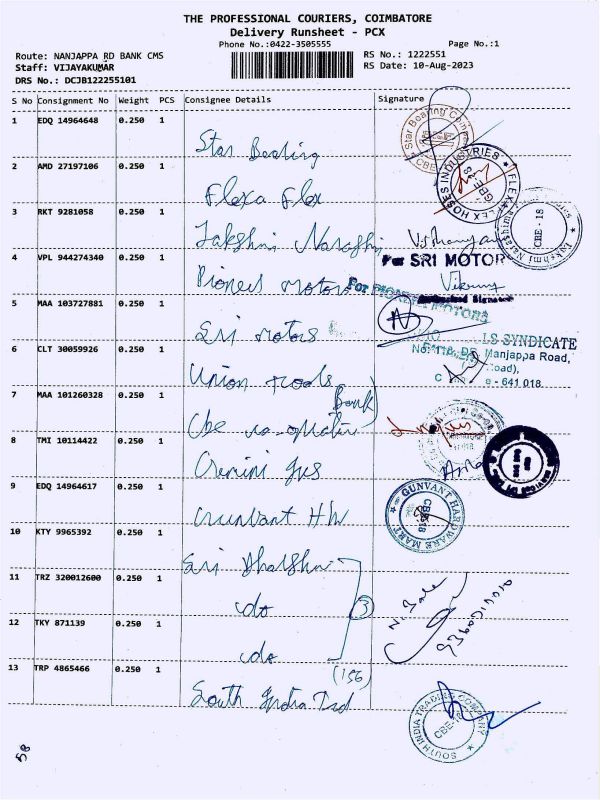 THE PROFESSIONAL COURIERS, COIMBATORE
Delivery Runsheet - PCX
Phone No.:0422-3505555 Page No.:1
Route: NANJAPPA RD BANK CMS RS No.: 1222551
Staff: VIJAYAKUMAR RS Date: 10-Aug-2023
DRS No.: DCJB122255101
S No Consignment No Weight PCS Consignee Details Signature
1 EDQ 14964648 0.250 1
Star Bearing
2 AMD 27197106 0.250 1
Flexa Flex
3 RKT 9281058 0.250 1
Lakshmi
4 VPL 944274340 0.250 1
For SRI MOTOR
Pioneer Motors
For PIONEER MOTORS
5 MAA 103727881 0.250 1
Sri Motors
LS SYNDICATE
6 CLT 30059926 0.250 1
Manjappa Road,
641 018
Union Tools
7 MAA 101260328 0.250 1
Bank
Cbe co-operative
8 TMI 10114422 0.250 1
9 EDQ 14964617 0.250 1
GUNVANT HARDWARE MART
Gunvant H/W
10 KTY 9965392 0.250 1
Sri
11 TRZ 320012600 0.250 1
do
3
12 TKY 871139 0.250 1
do
13 TRP 4865466 0.250 1
(156)
South India Trd
SOUTH INDIA TRADING COMPANY
CBE-18
58